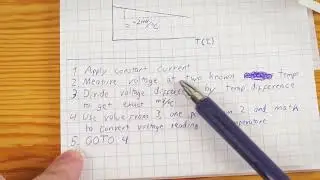 ≈ -2mV/°C
T(°C)
1 Apply constant current
2 Measure voltage at two known temps
3 Divide voltage difference by temp. difference
to get exact mV/°C
4 Use value from 3, one po from 2 and math
to convert voltage reading temperature
5. GOTO 4